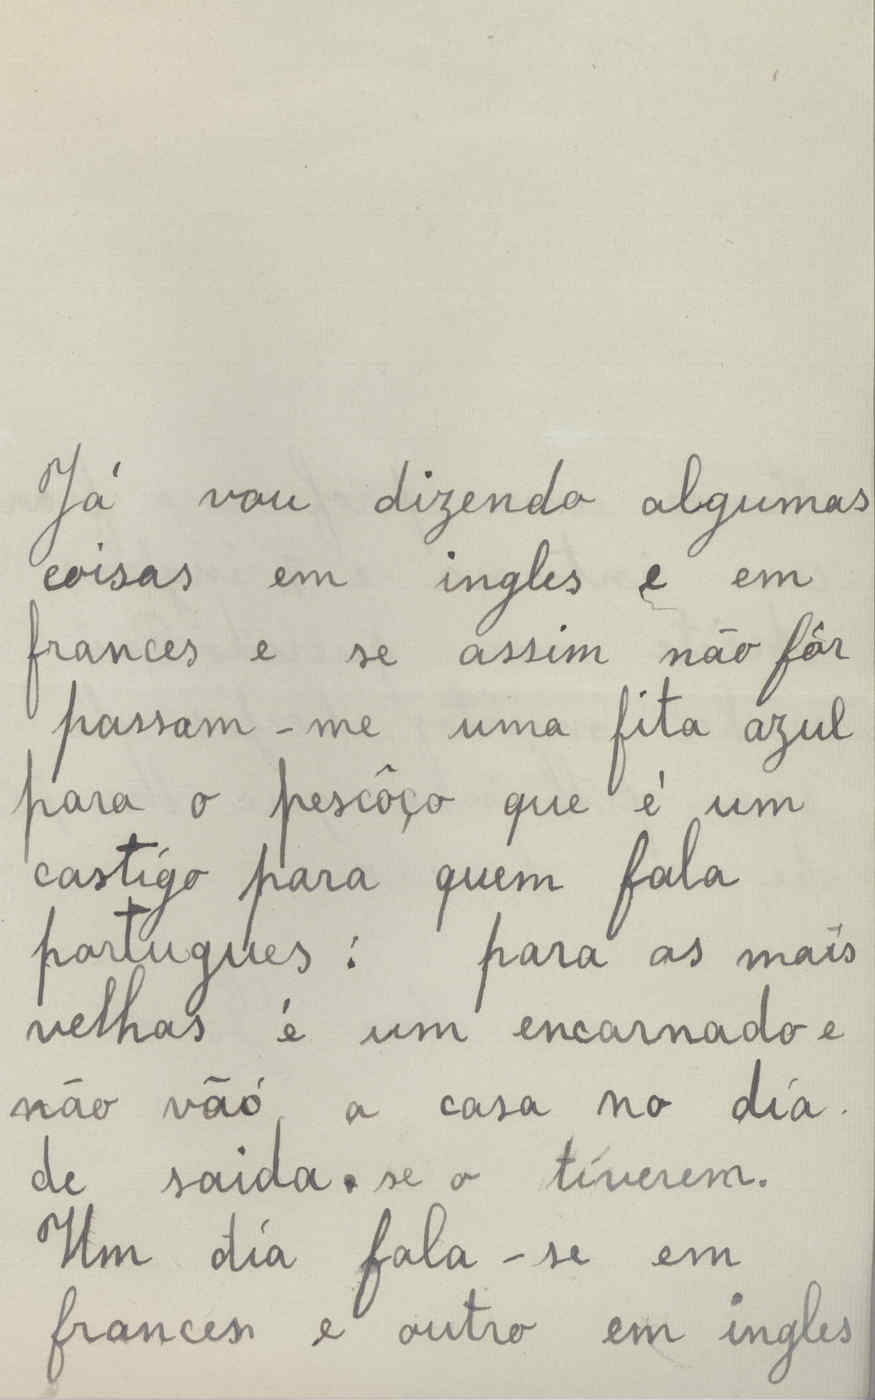 Já vou dizendo algumas
coisas em ingles e em
frances e se assim não fôr
passam-me uma fita azul
para o pescôço que é um
castigo para quem fala
portugues: para as mais
velhas é um encarnado e
não vãó a casa no dia.
de saida. se o tiverem.
Um dia fala-se em
frances e outro em ingles